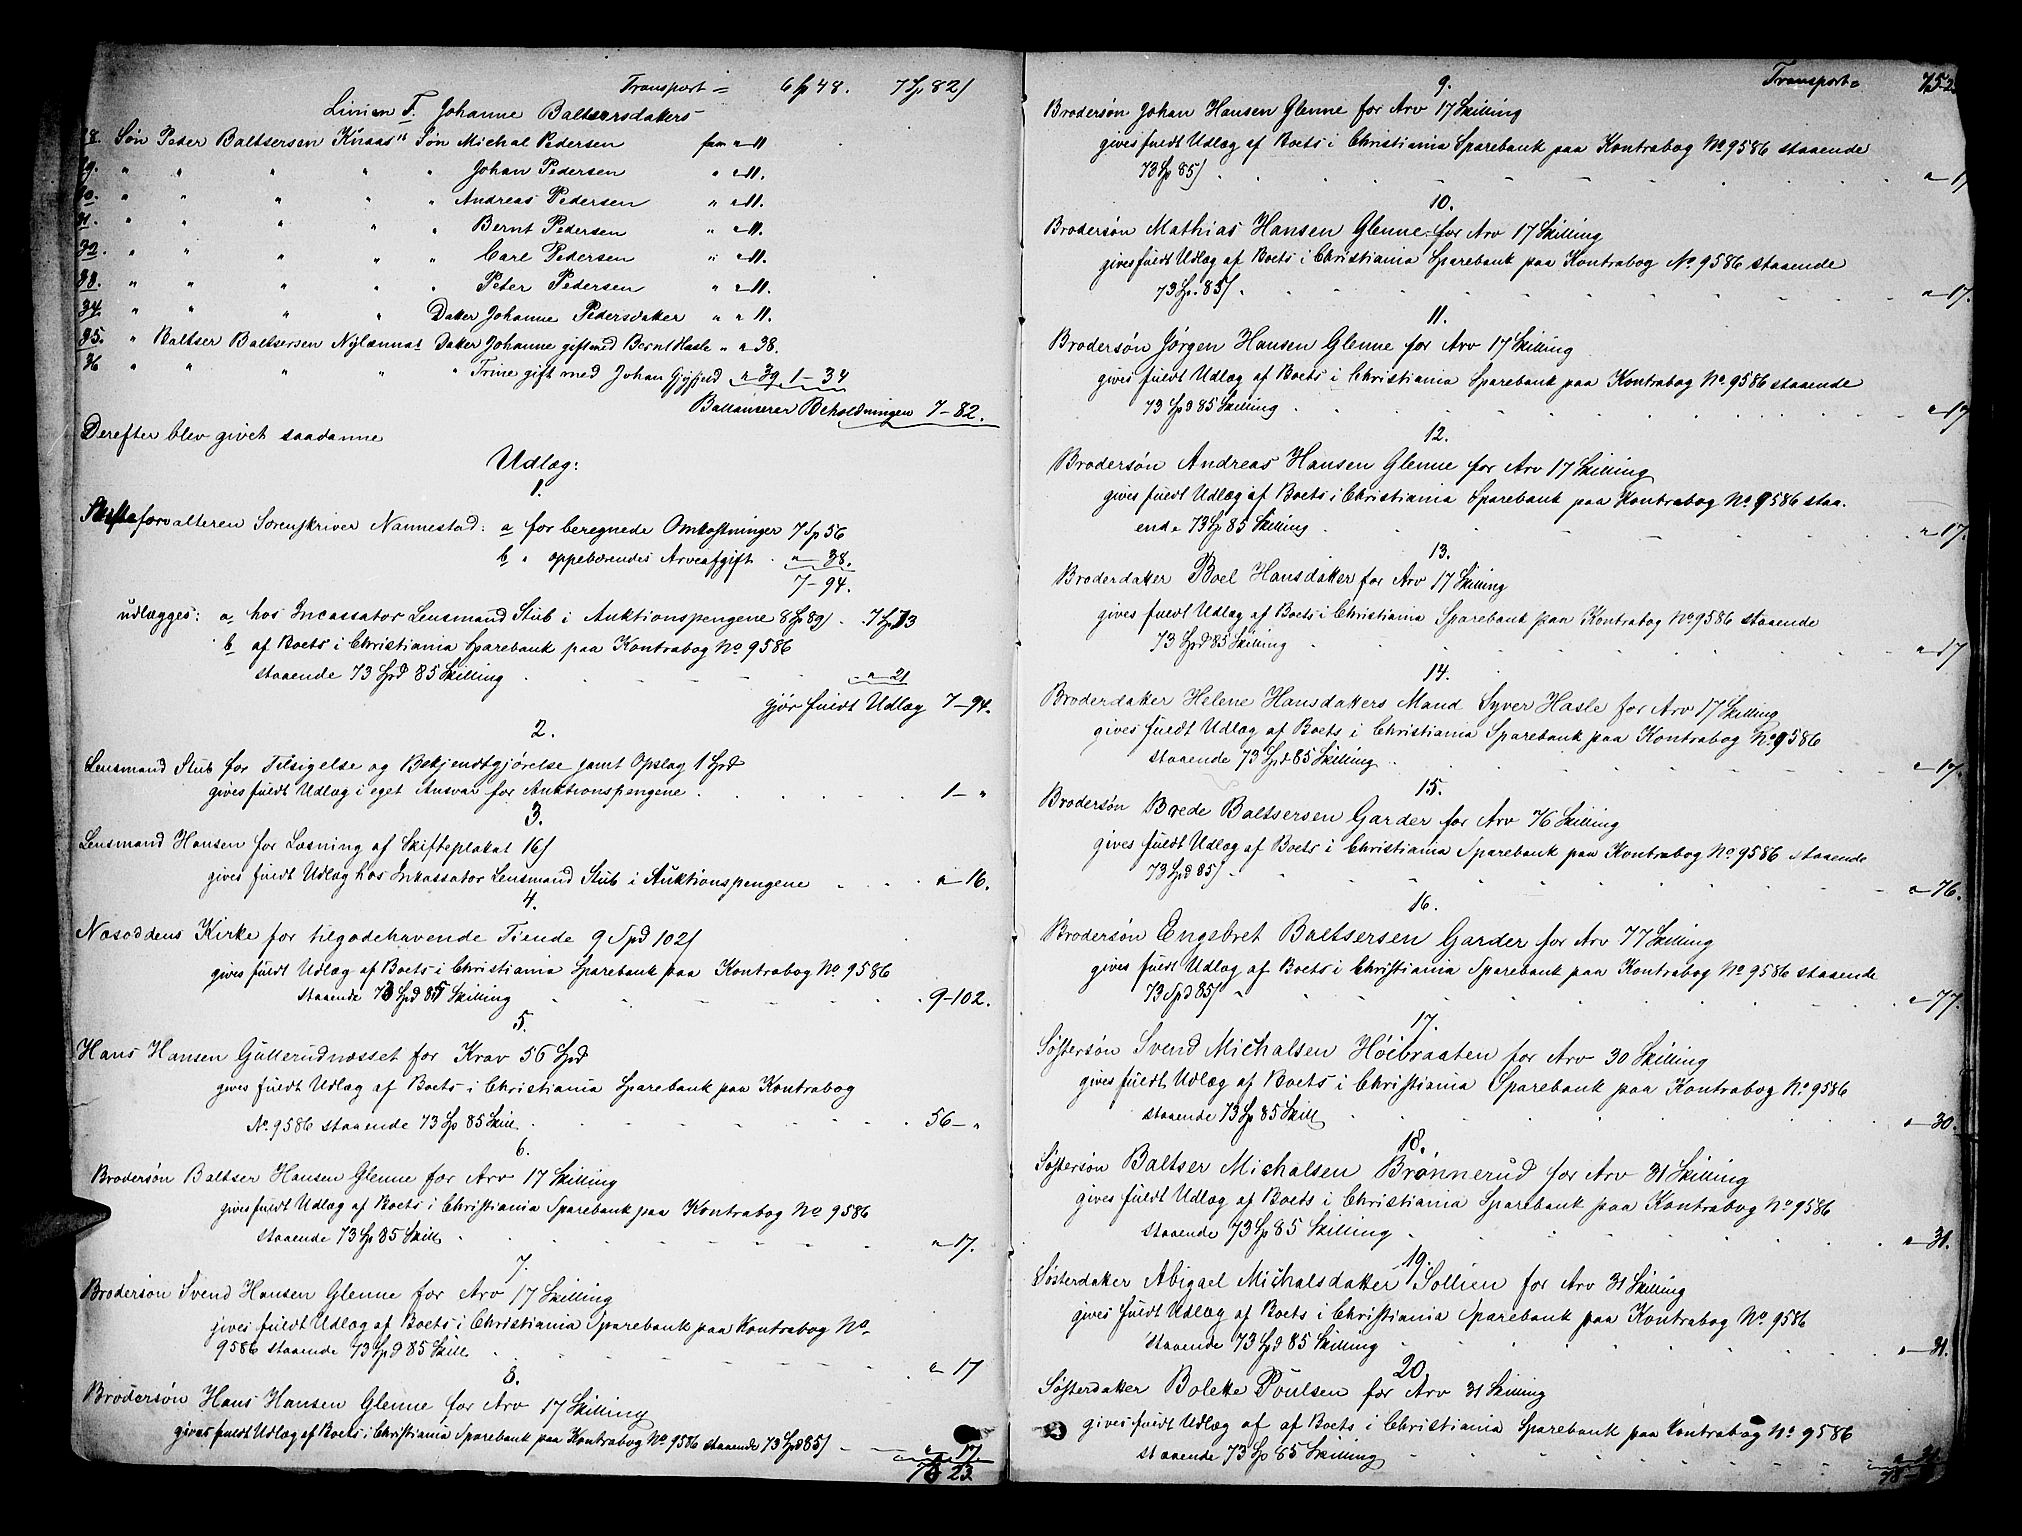 Transport = 6 Sp 48. 7 Sp 82 s
Linien F. Johanne Baltsersdakers
28. Søn Peder Baltsersen Knaas" Søn Michal Pedersen faar " 11
29. " " " " " Johan Pedersen " " 11.
30. " " " " " Andreas Pedersen " " 11.
31. " " " " " Bernt Pedersen " " 11.
32. " " " " " Carl Pedersen " " 11.
33. " " " " " Peter Pedersen " " 11.
34. " " " " Datter Johanne Pedersdatter " " 11.
35. " Baltser Baltsersen Nylænna" Datter Johanne gift med Bernt Hasle " " 38.
36 " " " " " Trine gift med Johan " 39 1 – 34
Ballanserer Beholdningen 7 – 82.
Derefter blev givet saadanne
Udlæg:
1.
Skifteforvalteren Sorenskriver Nannestad: a for beregnede Omkostninger 7 Sp 56
b " oppebærendes Arveafgift " 38.
7 – 94.
udlægges: a, hos Incassator Lensmand Stub i Auktionspengene 8 Sp 89 s . 7 Sp 73
b af Boets i Christiania Sparebank paa Kontrabog No 9586
staaende 73 Spd 85 Skilling " – 21
gjør fuldt Udlæg 7 – 94.
2.
Lensmand Stub for Tilsigelse og Bekjendtgjørelse samt Opslag 1 Spd
gives fuldt Udlæg i eget Ansvar for Auktionspengene 1 – "
3.
Lensmand Hansen for Læsning af Skifteplakat 16 s
gives fuldt Udlæg hos Inkassator Lensmand Stub i Auktionspengene " – 16.
4.
Næsoddens Kirke for tilgodehavende Tiende 9 Spd 102 s
gives fuldt Udlæg af Boets i Christiania Sparebank paa Kontrabog No. 9586
staaende 73 Spd 85 Skilling 9 – 102.
5.
Hans Hansen Gullerudnæsset for Krav 56 Spd
gives fuldt Udlæg af Boets i Christiania Sparebank paa Kontrabog
No. 9586 staaende 73 Sp 85 Skill. 56 – "
6.
Brodersøn Baltser Hansen Glenne for Arv 17 Skilling
gives fuldt Udlæg af Boets i Christiania Sparebank paa Kontrabog No 9586
staaende 73 Sp 85 Skill " – 17.
7.
Brodersøn Svend Hansen Glenne for Arv 17 Skilling
gives fuldt Udlæg af Boets i Christiania Sparebank paa Kontrabog No.
9586 staaende 73 Spd 85 Skill. " – 17
8.
Brodersøn Hans Hansen Glenne for Arv 17 Skilling
gives fuldt Udlæg af Boets i Christiania Sparebank paa Kontrabog No. 9586 staaende 73 Spd 85 s " – 17.
75 23.
Transport =
9.
Brodersøn Johan Hansen Glenne for Arv 17 Skilling
gives fuldt Udlæg af Boets i Christiania Sparebank paa Kontrabog No. 9586 staaende
73 Sp 85 s " – 17
10.
Brodersøn Mathias Hansen Glenne for Arv 17 Skilling
gives fuldt Udlæg af Boets i Christiania Sparebank paa Kontrabog No. 9586 staaende
73 Sp. 85 s " – 17.
11.
Brodersøn Jørgen Hansen Glenne for Arv 17 Skilling
gives fuldt Udlæg af Boets i Christiania Sparebank paa Kontrabog No. 9586 staaende
73 Spd 85 Skilling " – 17
12.
Brodersøn Andreas Hansen Glenne for Arv 17 Skilling
gives fuldt Udlæg af Boets i Christiania Sparebank paa Kontrabog No. 9586 staa-
ende 73 Sp 85 Skilling " – 17.
13.
Broderdatter Boel Hansdatter for Arv 17 Skilling
gives fuldt Udlæg af Boets i Christiania Sparebank paa Kontrabog No. 9586 staaende
73 Spd 85 Skilling " – 17
14.
Broderdatter Helene Hansdatters Mand Syver Hasle for Arv 17 Skilling
gives fuldt Udlæg af Boets i Christiania Sparebank paa Kontrabog No. 9586
staaende 73 Spd 85 Skilling " – 17.
15.
Brodersøn Brede Baltsersen Garder for Arv 76 Skilling
gives fuldt Udlæg af Boets i Christiania Sparebank paa Kontrabog No. 9586 staaende
73 Spd 85 s " – 76.
16.
Brodersøn Engebret Baltsersen Garder for Arv 77 Skilling
gives fuldt Udlæg af Boets i Christiania Sparebank paa Kontrabog No. 9586 staaende
73 Spd 85 s " – 77.
17.
Søstersøn Svend Michalsen Høibraaten for Arv 30 Skilling
gives fuldt Udlæg af Boets i Christiania Sparebank paa Kontrabog No. 9586
staaende 73 Sp 85 Skill " – 30.
18.
Søstersøn Baltser Michalsen Brønnerud for Arv 31 Skilling
gives fuldt Udlæg af Boets i Christiania Sparebank paa Kontrabog No 9586
staaende 73 Sp 85 Skilling " – 31.
19.
Søsterdatter Abigael Michalsdatter Sollien for Arv 31 Skilling
gives fuldt Udlæg af Boets i Christiania Sparebank paa Kontrabog No. 9586
staaende 73 Spd 85 Skilling " – 31.
20.
Søsterdatter Bolette Poulsen for Arv 31 Skilling
gives fuldt Udlæg af af Boets i Christiania Sparebank paa Kontrabog No 9586
staaende 73 Sp 85 Skilling